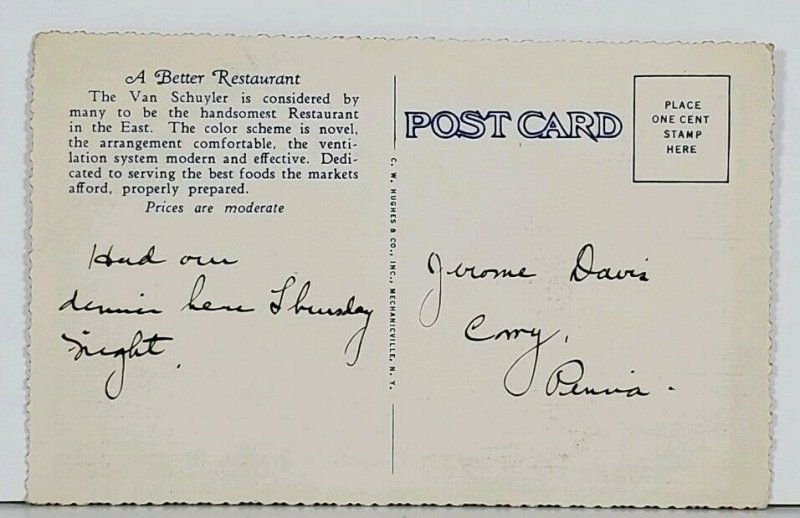 A Better Restaurant
The Van Schuyler is considered by
many to be the handsomest Restaurant
in the East. The color scheme is novel,
the arrangement comfortable, the venti-
lation system modern and effective. Dedi-
cated to serving the best foods the markets
afford, properly prepared.
Prices are moderate
Had our
dinnir here Thursday
night.
C. W. HUGHES & CO., INC., MECHANICVILLE, N. Y.
POST CARD
PLACE
ONE CENT
STAMP
HERE
Jerome Davis
Corry,
Penna.